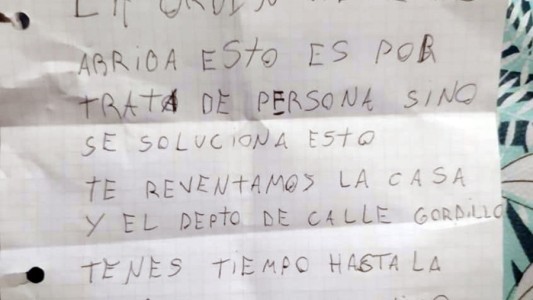 LA ORDEN
ABRIDA ESTO ES POR
TRATA DE PERSONA SINO
SE SOLUCIONA ESTO
TE REVENTAMOS LA CASA
Y EL DEPTO DE CALLE GORDILLO
TENES TIEMPO HASTA LA